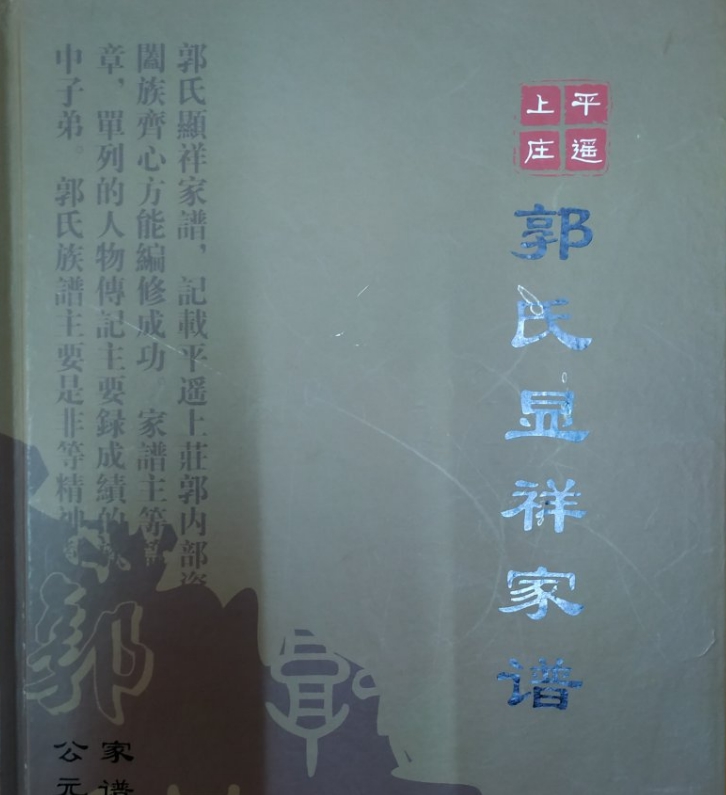 平遥
上庄
郭氏显祥家谱
郭氏顯祥家譜，記載平遥上莊郭内部資
闔族齊心方能編修成功。家譜主等
章，單列的人物傳記主要録成績的
中子弟。郭氏族譜主要是非等精神
郭
家譜
公元